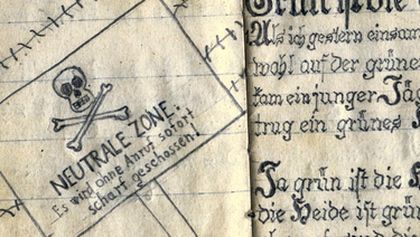 NEUTRALE ZONE!
Es wird ohne Anruf sofort
scharf geschossen!
Grün ist die
Als ich gestern einsam
wohl auf der grünen
kam ein junger Jäg
trug ein grünes K
Ja grün ist die H
die Heide ist grün